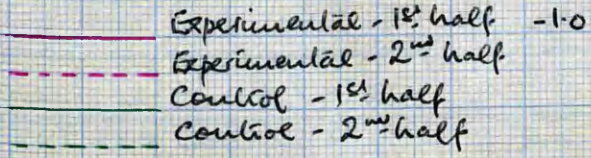 Experimental - 1st half -1.0
Experimental - 2nd half
Control - 1st half
Control - 2nd half